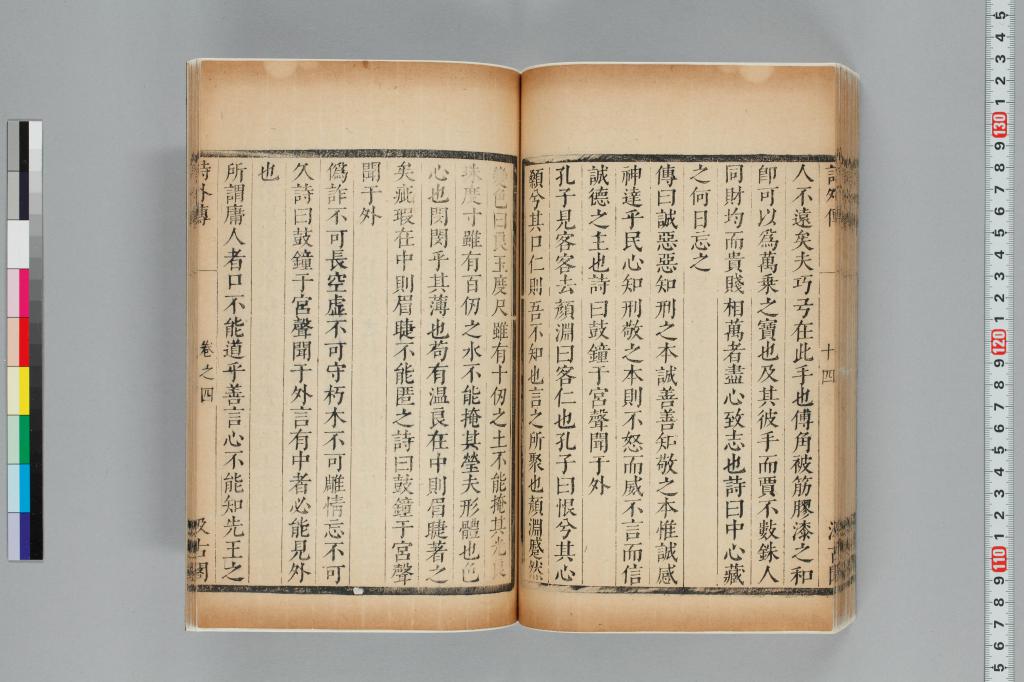 詩外傳
十四
汲古閣
人不遠矣夫巧弓在此手也傅角被筋膠漆之和
卽可以爲萬乘之寶也及其彼手而賈不數銖人
同財均而貴賤相萬者盡心致志也詩曰中心藏
之何日忘之
傳曰誠惡惡知刑之本誠善善知敬之本惟誠感
神達乎民心知刑敬之本則不怒而威不言而信
誠德之主也詩曰鼓鐘于宮聲聞于外
孔子見客客去顏淵曰客仁也孔子曰恨兮其心
顙兮其口仁則吾不知也言之所聚也顏淵蹙然
變色曰良玉度尺雖有十仞之土不能掩其光良
珠度寸雖有百仞之水不能掩其瑩夫形體也色
心也閔閔乎其薄也苟有溫良在中則眉睫著之
矣疵瑕在中則眉睫不能匿之詩曰鼓鐘于宮聲
聞于外
僞詐不可長空虛不可守朽木不可雕情忘不可
久詩曰鼓鐘于宮聲聞于外言有中者必能見外
也
所謂庸人者口不能道乎善言心不能知先王之
詩外傳
卷之四
汲古閣